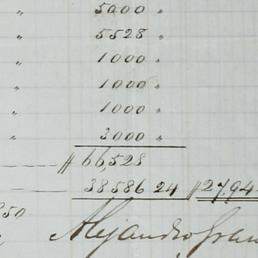 " 5000 "
" 5528 "
" 1000 "
" 1000 "
" 1000 "
" 3000 "
$ 66,528
38586 24 $27,94
850
Alejandro Gran